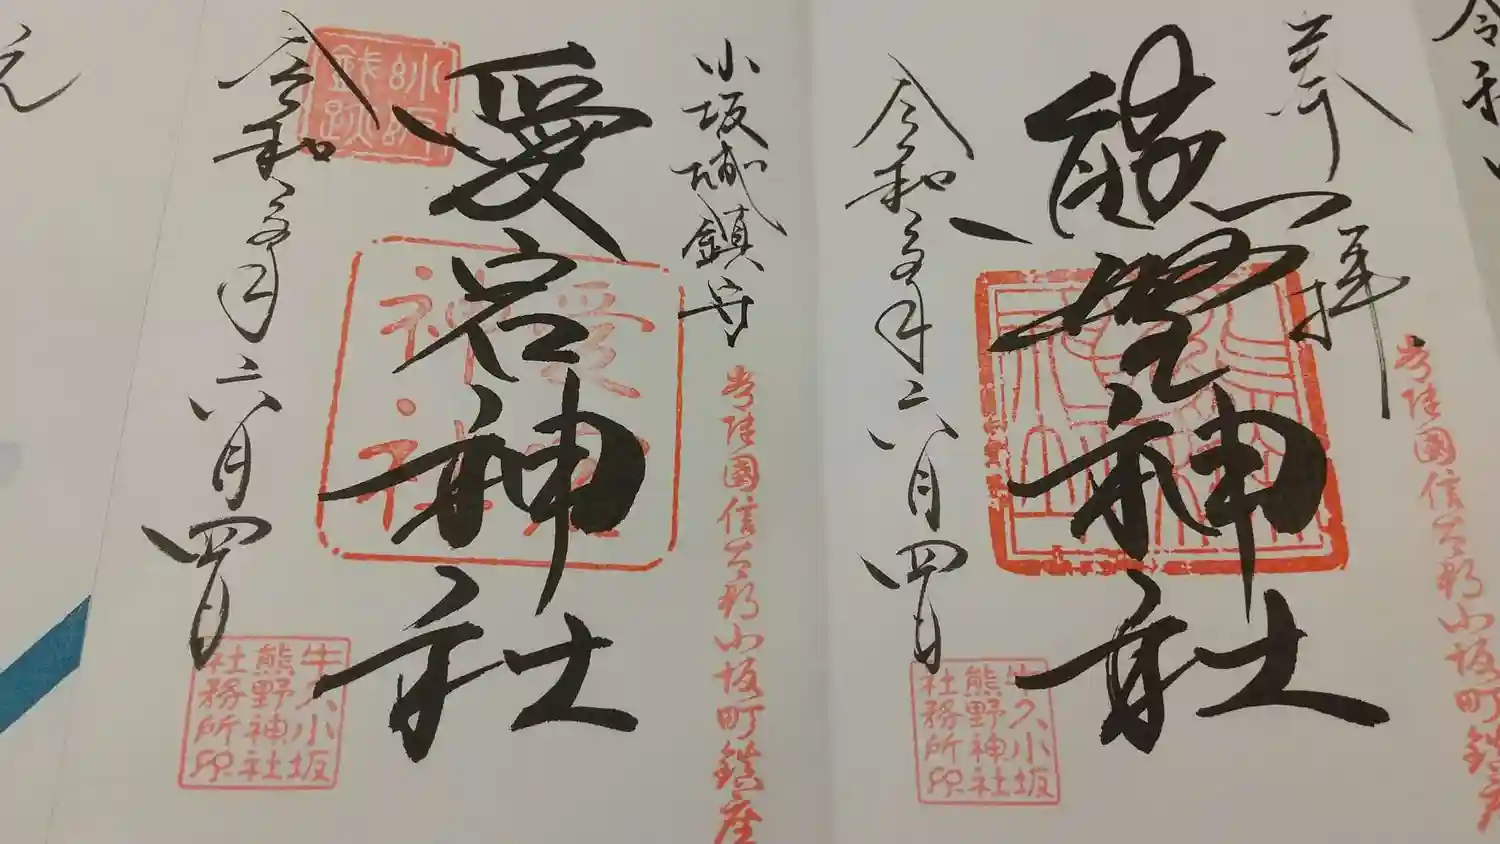 奉拝
熊野神社
令和六年六月四日
常陸國信太郡小坂町鎮座
牛久小坂
熊野神社
社務所印
小坂城鎮守
愛宕神社
令和六年六月四日
常陸國信太郡小坂町鎮座
愛宕
神社
牛久小坂
熊野神社
社務所印
令和
元